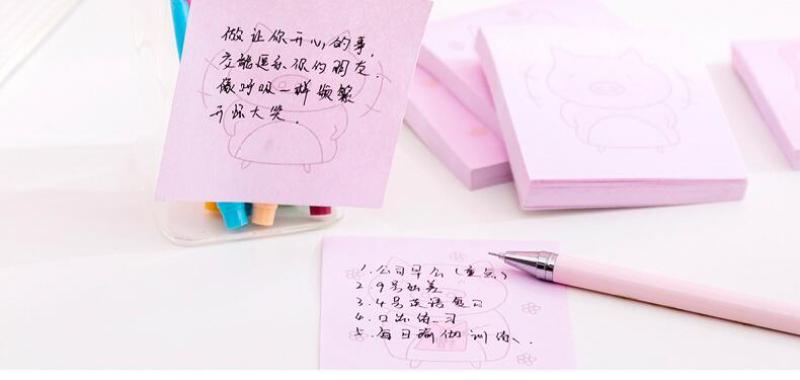 做让你开心的事，
交能逗乐你的朋友．
像呼吸一样频繁
开怀大笑．
1.公司早会(重点)
2 9号出差
3.4号英语复习
4.口语练习
5.每日瑜伽训练、